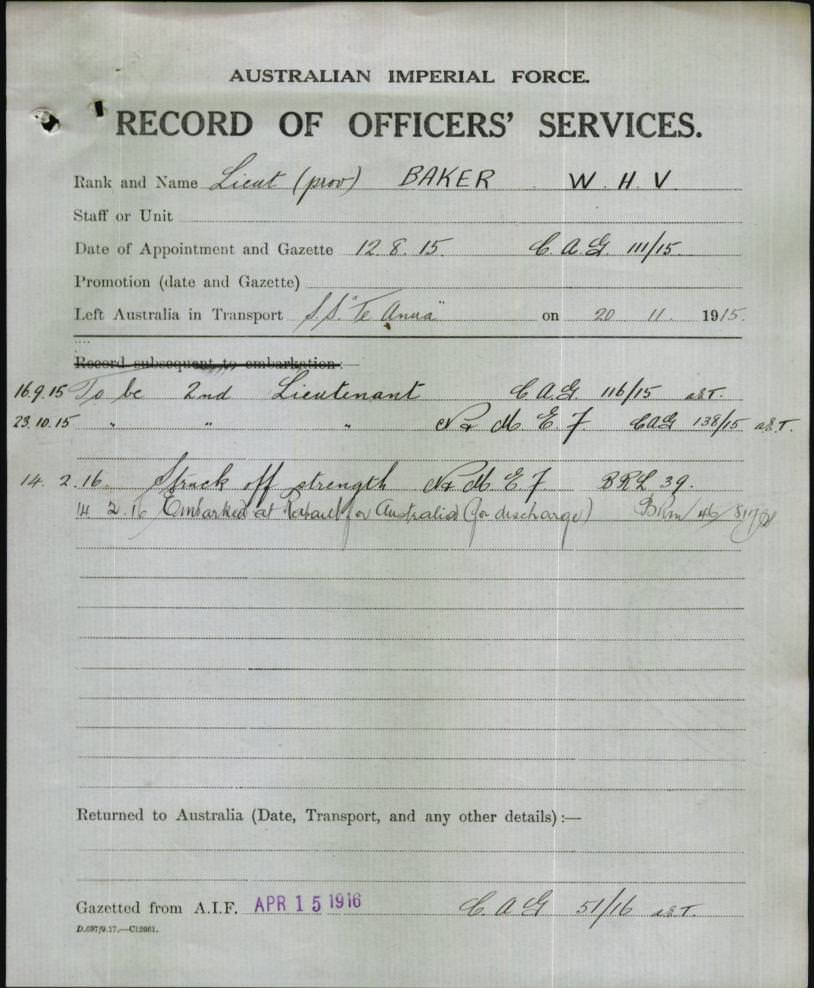 AUSTRALIAN IMPERIAL FORCE.
RECORD OF OFFICERS' SERVICES.
Rank and Name Lieut (prov) BAKER W. H. V.
Staff or Unit
Date of Appointment and Gazette 12. 8. 15. C. A. G. 111/15.
Promotion (date and Gazette)
Left Australia in Transport S.S. "Te Anua" on 20 11. 1915.
Record subsequent to embarkation:—
16.9.15 To be 2nd Lieutenant C. A. G. 116/15
23.10.15 " " " N & M. E. F CAG 138/15
14. 2. 16. Struck off strength N & M E F BRL 39.
14 2. 16 Embarked at Rabaul for Australia (for discharge) 46
Returned to Australia (Date, Transport, and any other details) :—
Gazetted from A.I.F. APR 15 1916 C. A G 51/16
D.697/9.17.—C12061.